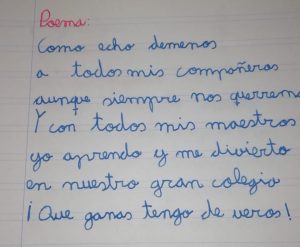 Poema:
Como echo demenos
a todos mis compañeros
aunque siempre nos querremo
Y con todos mis maestros
yo aprendo y me divierto
en nuestro gran colegio
¡Que ganas tengo de veros!